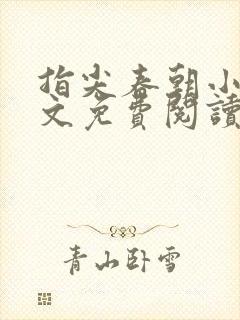 指尖春朝小
文免費閱讀
青山卧雪